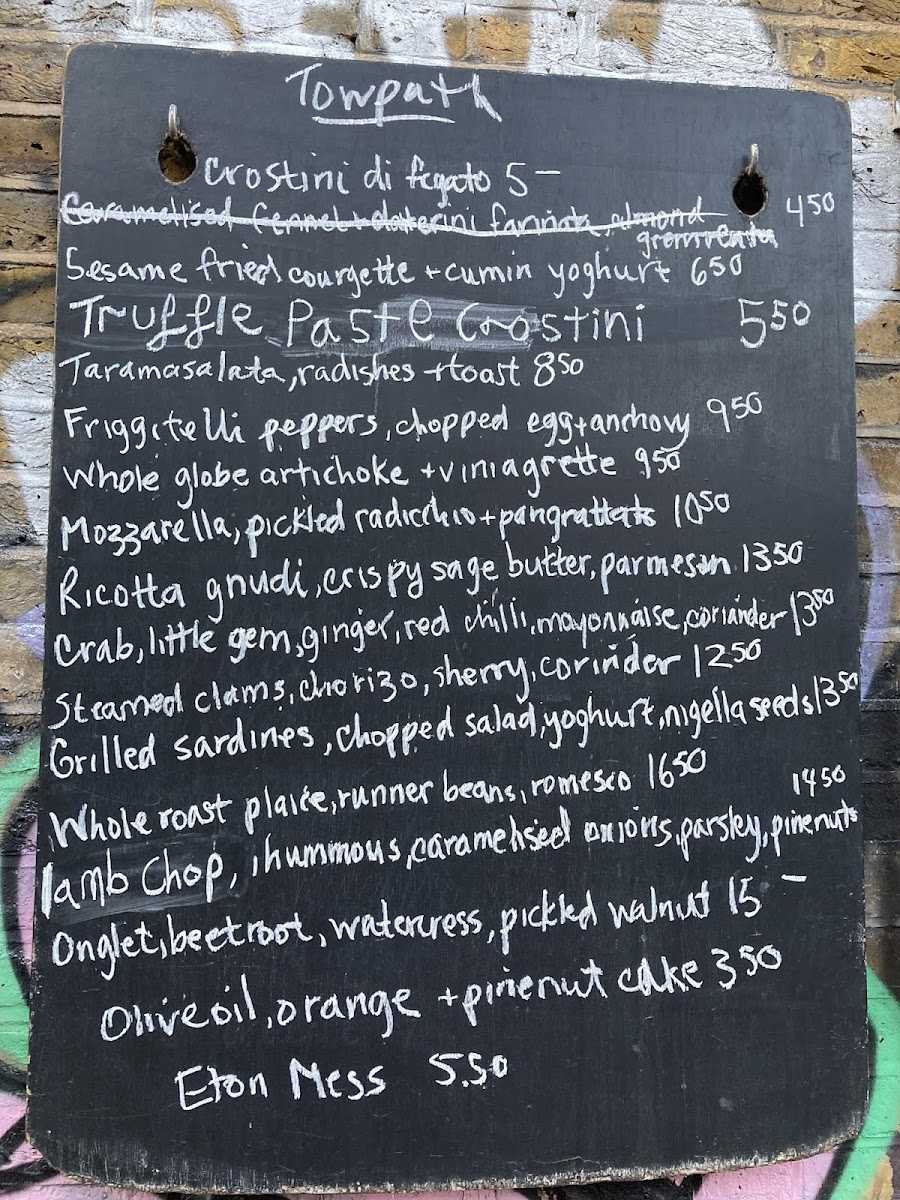 Towpath
Crostini di fegato 5-
Caramelised fennel + daterini farinata, almond 450
gremolata
Sesame fried courgette + cumin yoghurt 650
Truffle Paste Crostini 550
Taramasalata, radishes + toast 850
Friggitelli peppers, chopped egg + anchovy 950
Whole globe artichoke + viniagrette 950
Mozzarella, pickled radicchio + pangrattato 1050
Ricotta gnudi, crispy sage butter, parmesan 1350
Crab, little gem, ginger, red chilli, mayonnaise, coriander 1350
Steamed clams, chorizo, sherry, corinder 1250
Grilled sardines, chopped salad, yoghurt, nigella seeds 1350
Whole roast plaice, runner beans, romesco 1650
1450
lamb Chop, hummous, caramelised onions, parsley, pinenuts
Onglet, beetroot, watercress, pickled walnut 15-
Olive oil, orange + pinenut cake 350
Eton Mess 5.50